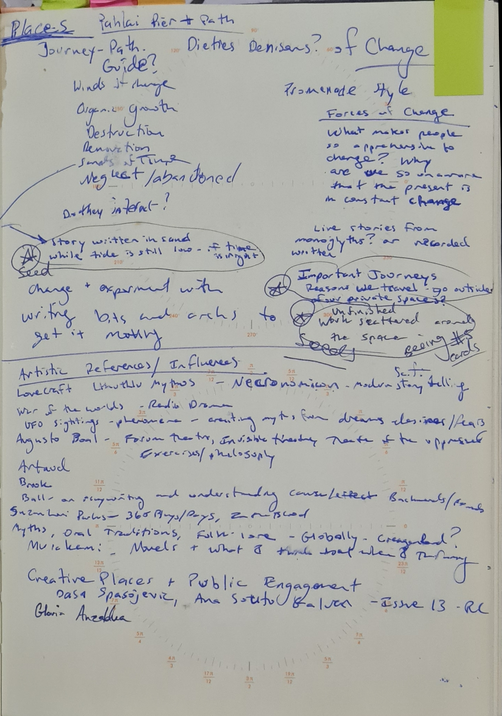 Places Pier + Path
Journey-Path. Dieties Denisans? of Change
Guide?
Winds of change
Promenade Style
Organic growth
Destruction
Renovation
Sands of Time
Neglect / abandoned
Do they interact?
Forces of Change
What makes people
so apprehensive to
change? Why
are we so unaware
that the present is
in constant change
Live stories from
monoglyths? or recorded
written
Story written in sand
while tide is still low - if time
is right
Seed
Important Journeys
Reasons we travel - go outside
of our private spaces?
change + experiment with
writing bits and archs to
get it moving
unfinished
work scattered around
the space
Seeds
Being
cards
Artistic References / Influences
Sci fi
Lovecraft Cthulhu Mythos - Necronomicon - modern story telling
War of the worlds - Radio Drama
UFO sightings - phenomena - creating myths from dreams desires/fears
Augusto Boal - Forum theatre, Invisible theatre, Theatre of the oppressed
Exercises/philosophy
Artaud
Brook
Ball - on playwriting and understanding cause/effect Backwards/
Suzan Lori Parks - 365 Plays/Days,
Myths, Oral Traditions, Folk lore - Globally -
Murakami - Novels + What I think about when I
Creative Places + Public Engagement
Dasa Spasojevic, Ana - Issue 13 -
Gloria Anzaldua